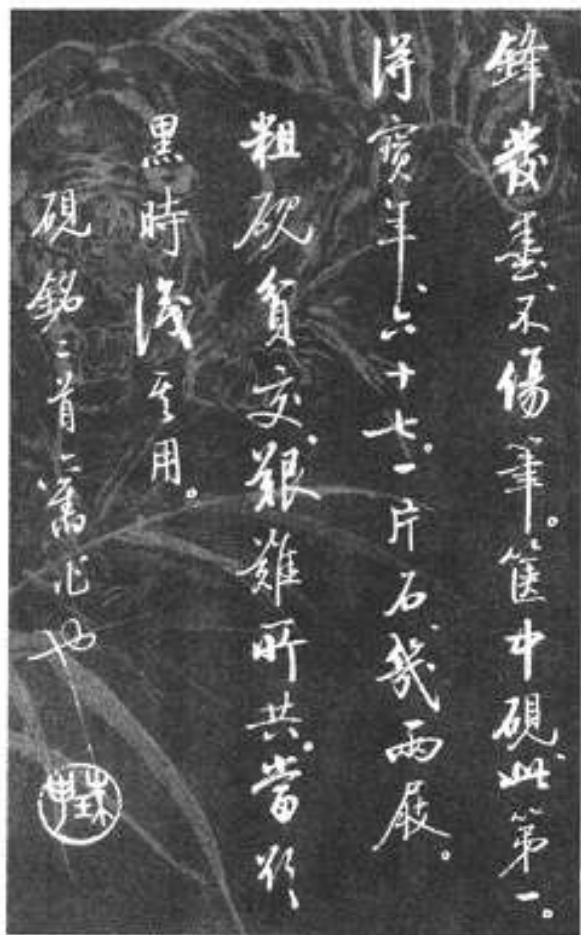 鋒發墨、不傷筆。篋中硯、此第一。
得寶年、六十七。一片石、幾兩屐。
粗硯貧交、艱難所共。當欲
黑時識其用。
硯銘二首舊作也
珠申